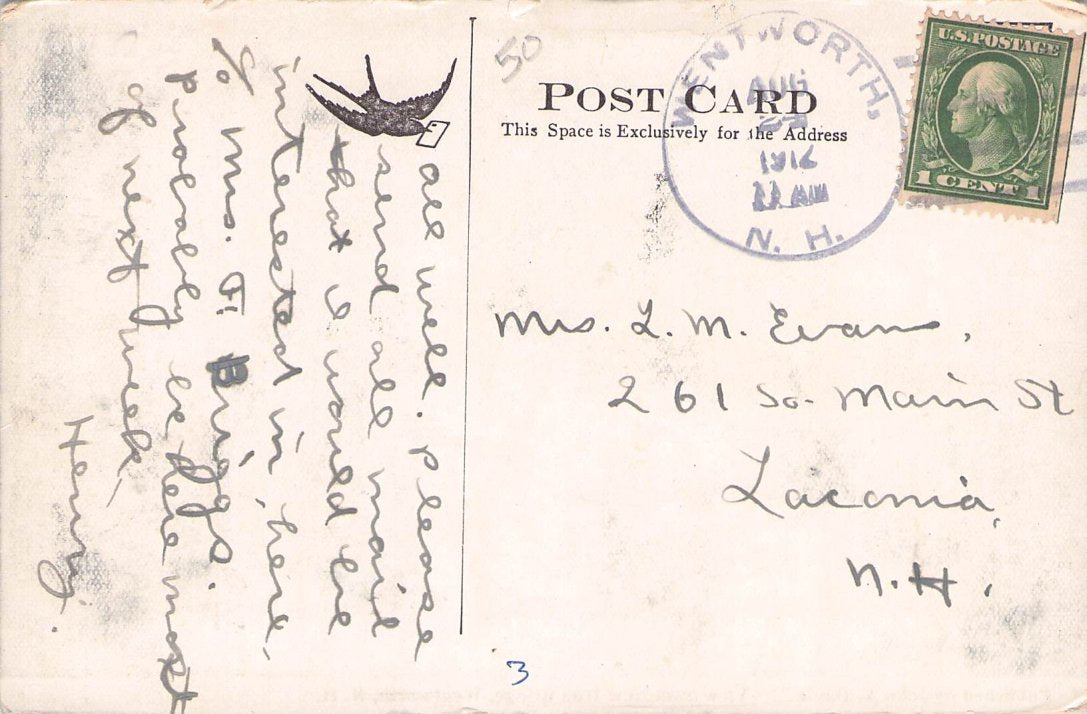 50
POST CARD
This Space is Exclusively for the Address
WENTWORTH,
AUG
1912
11 AM
N. H.
U.S. POSTAGE
1 CENT 1
all well. Please
send all mail
that I would be
interested in, here,
% Mrs. F. Briggs.
probably be here most
of next week,
Henry.
Mrs. L. M. Evans,
261 So. Main St
Laconia,
N. H.
3